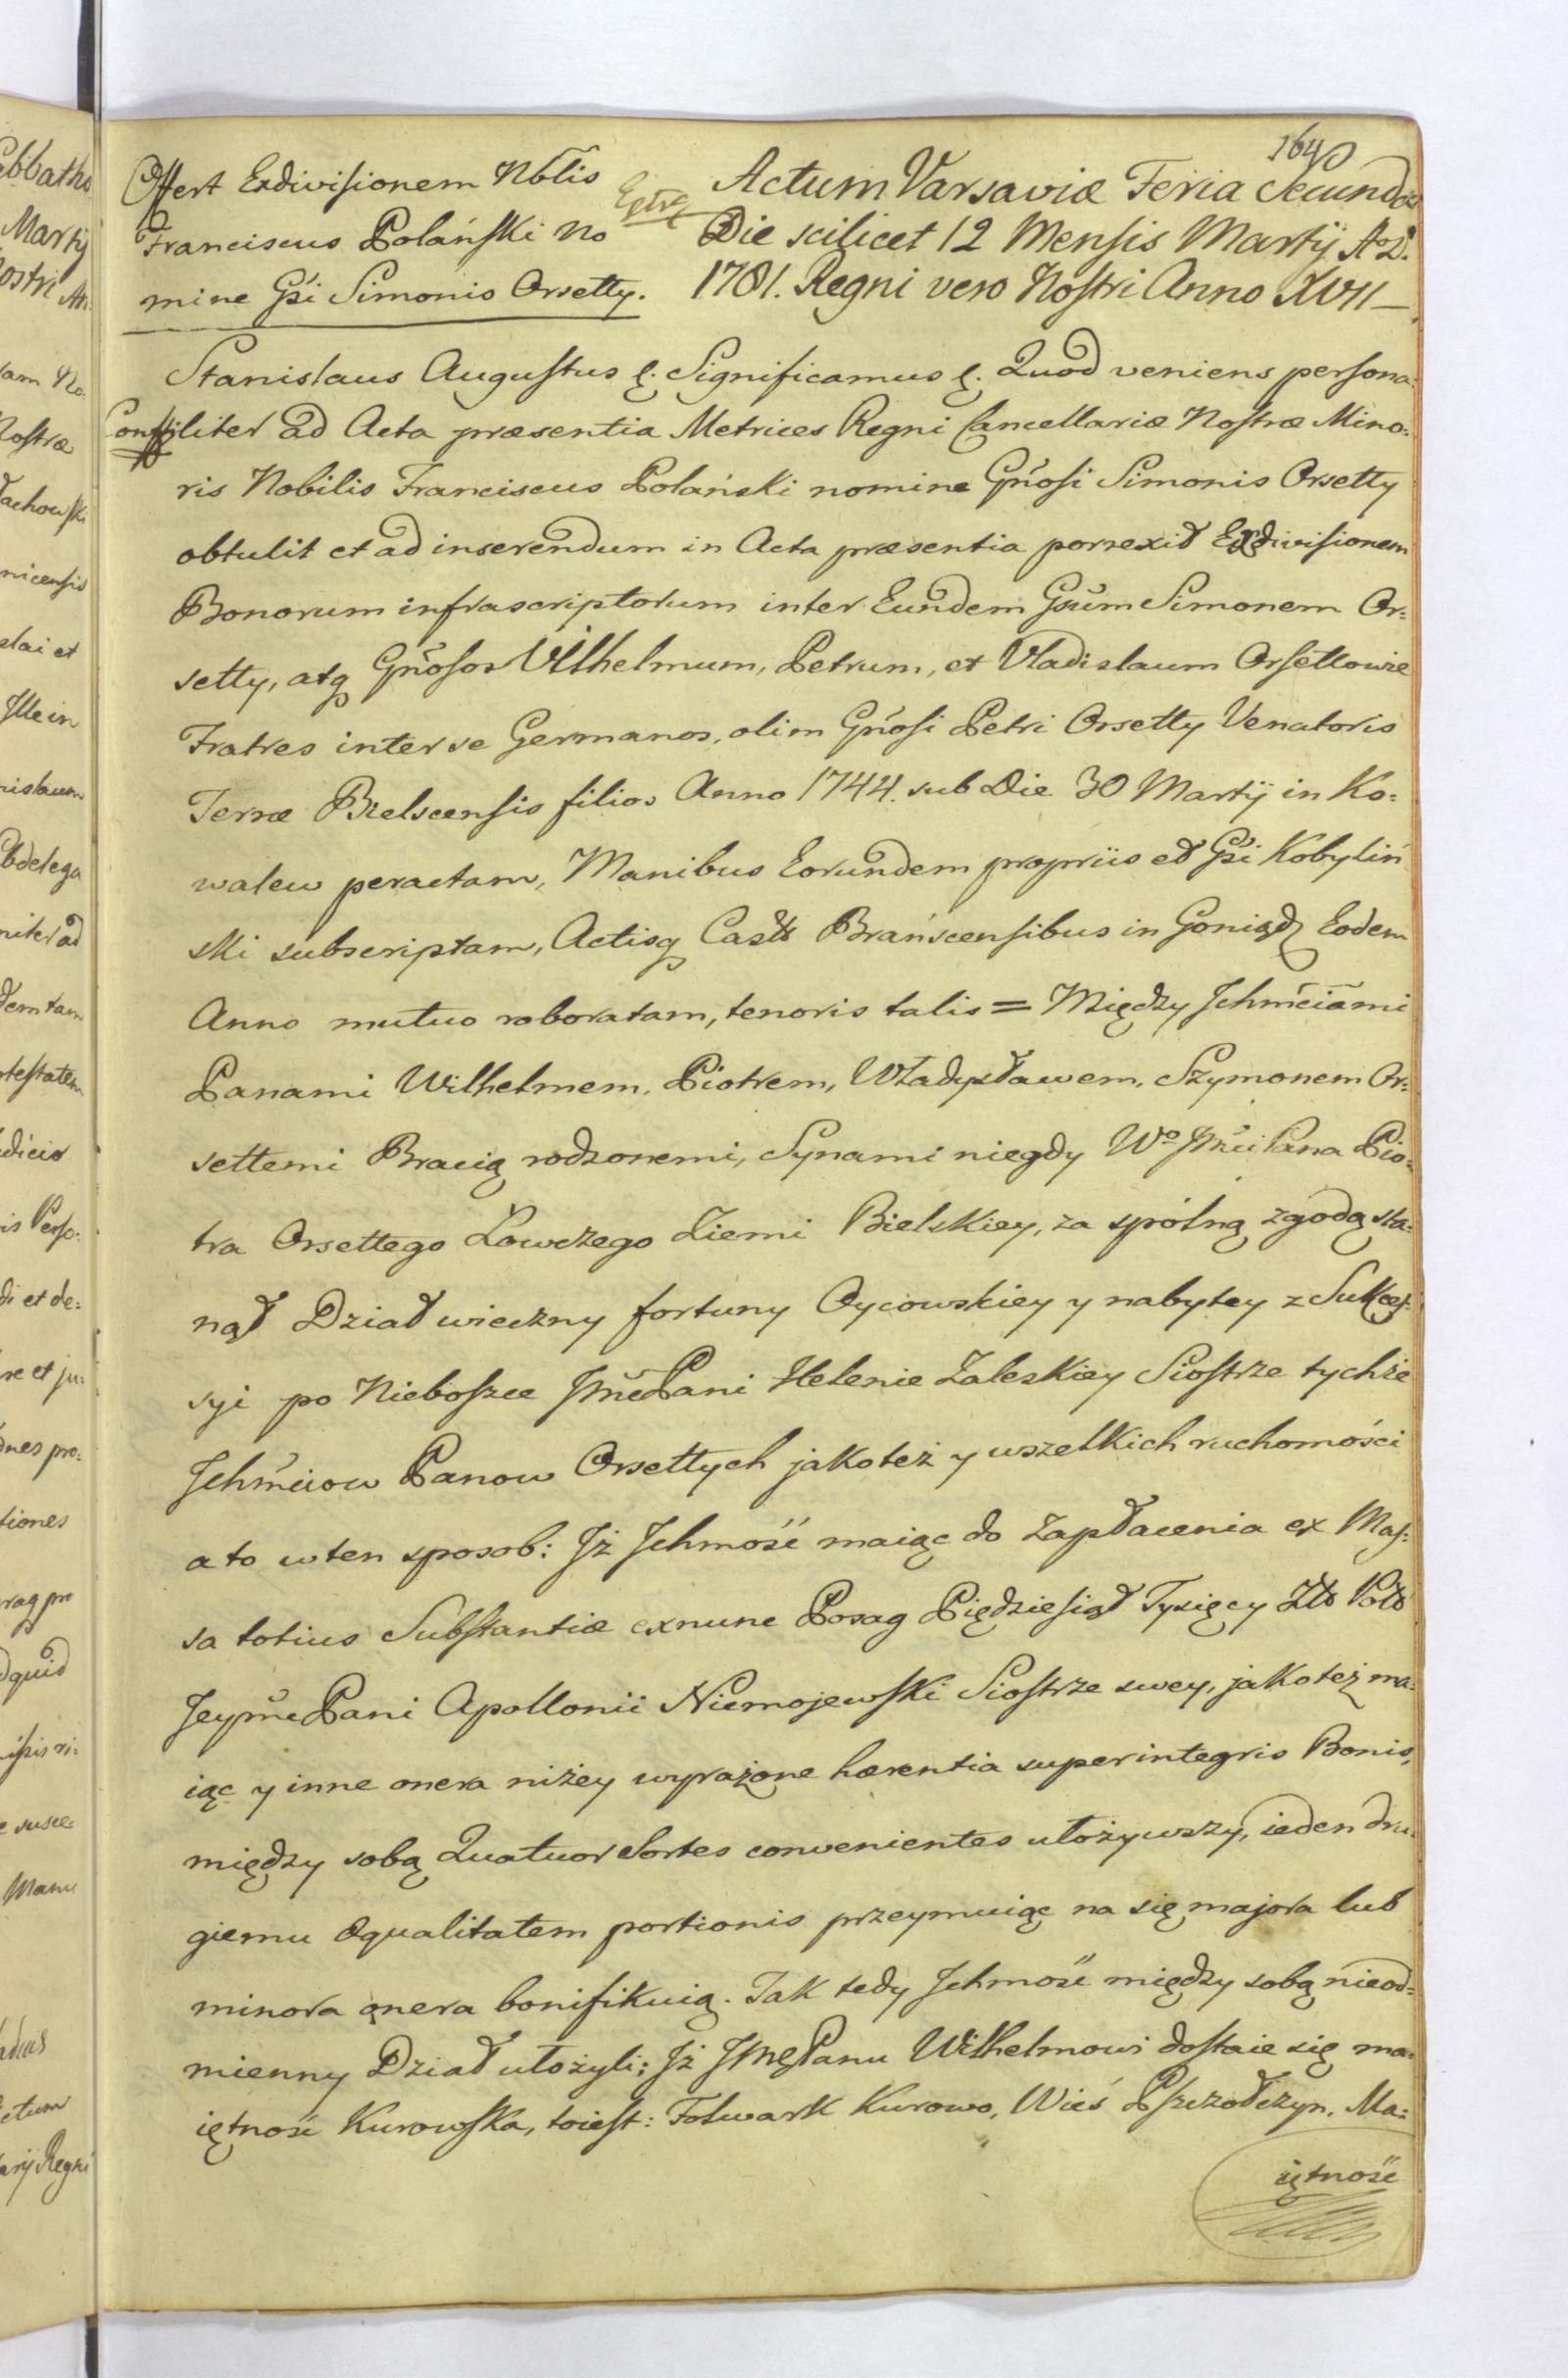 164
Offert Exdivisionem Nblis
Franciscus Polański no
mine Gsi Simonis Orsetty.
Extr
Actum Varsaviæ Feria Secunda
Die scilicet 12 Mensis Martij A. D.
1781. Regni vero Nostri Anno XVII
Stanislaus Augustus &. Significamus &. Quod veniens persona-
liter ad Acta præsentia Metrices Regni Cancellariæ Nostræ Mino-
ris Nobilis Franciscus Polański nomine Gnosi Simonis Orsetty
obtulit et ad inserendum in Acta præsentia porrexit Exdivisionem
Bonorum infrascriptorum inter Eundem Gsum Simonem Or-
setty, atq Gnosos Vilhelmum, Petrum, et Vladislaum Orsettowie
Fratres inter se Germanos, olim Gnosi Petri Orsetty Venatoris
Terræ Bielscensis filios Anno 1744. sub Die 30 Martij in Ko-
walew peractam, Manibus Eorundem propriis et Gsi Kobyliń
ski subscriptam, Actisq Castr Brańscensibus in Goniądz Eodem
Anno mutuo roboratam, tenoris talis = Między Jchmciami
Panami Wilhelmem, Piotrem, Władysławem, Szymonem Or-
settemi Bracią rodzonemi, Synami niegdy Wo Jmci Pana Pio-
tra Orsettego Łowczego Ziemi Bielskiey, za spólną zgodą sta-
nął Dział wieczny fortuny Oycowskiey y nabytey z Sukces-
syi po Nieboszce Jmc Pani Helenie Zaleskiey Siostrze tychże
Jchmciow Panow Orsettych jako też y wszelkich ruchomości
a to w ten sposob: Jż Jchmość maiąc do Zapłacenia ex Mas-
sa totius Substantiæ exnunc Posag Pięдziesiąt Tysięcy Złt Polt
Jeymc Pani Apollonii Niemojewski Siostrze swey, jako też ma-
iąc y inne onera niżey wyrażone hærentia super integris Bonis,
między sobą Quatuor Sortes convenientes ułożywszy, ieden dru-
giemu æqualitatem portionis przeymuiąc na się majora lub
minora onera bonifikuią. Tak tedy Jchmość między sobą nieod-
mienny Dział ułożyli: Jż Jmc Panu Wilhelmowi dostaie się ma-
iętność Kurowska, toiest: Folwark Kurowo, Wieś Pszczołczyn, Ma-
iętność